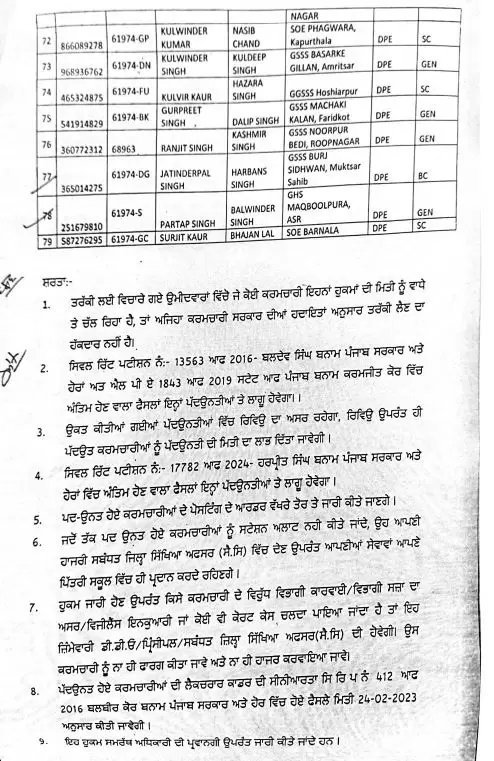 NAGAR
72 866089278 61974-GP KULWINDER KUMAR NASIB CHAND SOE PHAGWARA, Kapurthala DPE SC
73 968936762 61974-DN KULWINDER SINGH KULDEEP SINGH GSSS BASARKE GILLAN, Amritsar DPE GEN
74 465324875 61974-FU KULVIR KAUR HAZARA SINGH GGSSS Hoshiarpur DPE SC
75 541914829 61974-BK GURPREET SINGH DALIP SINGH GSSS MACHAKI KALAN, Faridkot DPE GEN
76 360772312 68963 RANJIT SINGH KASHMIR SINGH GSSS NOORPUR BEDI, ROOPNAGAR DPE GEN
77 365014275 61974-DG JATINDERPAL SINGH HARBANS SINGH GSSS BURJ SIDHWAN, Muktsar Sahib DPE BC
78 251679810 61974-S PARTAP SINGH BALWINDER SINGH GHS MAQBOOLPURA, ASR DPE GEN
79 587276295 61974-GC SURJIT KAUR BHAJAN LAL SOE BARNALA DPE SC
ਸ਼ਰਤਾਂ:-
1. ਤਰੱਕੀ ਲਈ ਵਿਚਾਰੇ ਗਏ ਉਮੀਦਵਾਰਾਂ ਵਿੱਚੋਂ ਜੇ ਕੋਈ ਕਰਮਚਾਰੀ ਇਹਨਾਂ ਹੁਕਮਾਂ ਦੀ ਮਿਤੀ ਨੂੰ ਵਾਧੇ
ਤੇ ਚੱਲ ਰਿਹਾ ਹੈ, ਤਾਂ ਅਜਿਹਾ ਕਰਮਚਾਰੀ ਸਰਕਾਰ ਦੀਆਂ ਹਦਾਇਤਾਂ ਅਨੁਸਾਰ ਤਰੱਕੀ ਲੈਣ ਦਾ
ਹੱਕਦਾਰ ਨਹੀਂ ਹੈ।
2. ਸਿਵਲ ਰਿੱਟ ਪਟੀਸ਼ਨ ਨੰ:- 13563 ਆਫ 2016- ਬਲਦੇਵ ਸਿੰਘ ਬਨਾਮ ਪੰਜਾਬ ਸਰਕਾਰ ਅਤੇ
ਹੋਰਾਂ ਅਤ ਐਲ ਪੀ ਏ 1843 ਆਫ 2019 ਸਟੇਟ ਆਫ ਪੰਜਾਬ ਬਨਾਮ ਕਰਮਜੀਤ ਕੌਰ ਵਿੱਚ
ਅੰਤਿਮ ਹੋਣ ਵਾਲਾ ਫੈਸਲਾਂ ਇਨ੍ਹਾਂ ਪੱਦਉਨਤੀਆਂ ਤੇ ਲਾਗੂ ਹੋਵੇਗਾ।।
3. ਉਕਤ ਕੀਤੀਆਂ ਗਈਆਂ ਪੱਦਉਨਤੀਆਂ ਵਿੱਚ ਰਿਵਿਊ ਦਾ ਅਸਰ ਰਹੇਗਾ, ਰਿਵਿਊ ਉਪਰੰਤ ਹੀ
ਪੱਦਉਤ ਕਰਮਚਾਰੀਆਂ ਨੂੰ ਪੱਦਉਨਤੀ ਦੀ ਮਿਤੀ ਦਾ ਲਾਭ ਦਿੱਤਾ ਜਾਵੇਗੀ।
4. ਸਿਵਲ ਰਿੱਟ ਪਟੀਸ਼ਨ ਨੰ:- 17782 ਆਫ 2024- ਹਰਪ੍ਰੀਤ ਸਿੰਘ ਬਨਾਮ ਪੰਜਾਬ ਸਰਕਾਰ ਅਤੇ
ਹੋਰਾਂ ਵਿੱਚ ਅੰਤਿਮ ਹੋਣ ਵਾਲਾ ਫੈਸਲਾਂ ਇਨ੍ਹਾਂ ਪੱਦਉਨਤੀਆਂ ਤੇ ਲਾਗੂ ਹੋਵੇਗਾ।
5. ਪਦ-ਉਨਤ ਹੋਏ ਕਰਮਚਾਰੀਆਂ ਦੇ ਪੋਸਟਿੰਗ ਦੇ ਆਰਡਰ ਵੱਖਰੇ ਤੌਰ ਤੇ ਜਾਰੀ ਕੀਤੇ ਜਾਣਗੇ।
6. ਜਦੋਂ ਤੱਕ ਪਦ ਉਨਤ ਹੋਏ ਕਰਮਚਾਰੀਆਂ ਨੂੰ ਸਟੇਸ਼ਨ ਅਲਾਟ ਨਹੀ ਕੀਤੇ ਜਾਂਦੇ, ਉਹ ਆਪਣੀ
ਹਾਜਰੀ ਸਬੰਧਤ ਜ਼ਿਲ੍ਹਾ ਸਿੱਖਿਆ ਅਫਸਰ (ਸੈ.ਸਿ) ਵਿੱਚ ਦੇਣ ਉਪਰੰਤ ਆਪਣੀਆਂ ਸੇਵਾਵਾਂ ਆਪਣੇ
ਪਿੱਤਰੀ ਸਕੂਲ ਵਿੱਚ ਹੀ ਪ੍ਰਦਾਨ ਕਰਦੇ ਰਹਿਣਗੇ।
7. ਹੁਕਮ ਜਾਰੀ ਹੋਣ ਉਪਰੰਤ ਕਿਸੇ ਕਰਮਚਾਰੀ ਦੇ ਵਿਰੁੱਧ ਵਿਭਾਗੀ ਕਾਰਵਾਈ/ਵਿਭਾਗੀ ਸਜ਼ਾ ਦਾ
ਅਸਰ/ਵਿਜੀਲੈਂਸ ਇਨਕੁਆਰੀ ਜਾਂ ਕੋਈ ਵੀ ਕੋਰਟ ਕੇਸ ਚਲਦਾ ਪਾਇਆ ਜਾਂਦਾ ਹੈ ਤਾਂ ਇਹ
ਜ਼ਿੰਮੇਵਾਰੀ ਡੀ.ਡੀ.ਓ/ਪ੍ਰਿੰਸੀਪਲ/ਸਬੰਧਤ ਜ਼ਿਲ੍ਹਾ ਸਿੱਖਿਆ ਅਫਸਰ(ਸੈ.ਸਿ) ਦੀ ਹੋਵੇਗੀ। ਉਸ
ਕਰਮਚਾਰੀ ਨੂੰ ਨਾ ਹੀ ਫਾਰਗ ਕੀਤਾ ਜਾਵੇ ਅਤੇ ਨਾ ਹੀ ਹਾਜਰ ਕਰਵਾਇਆ ਜਾਵੇ।
8. ਪੱਦਉਨਤ ਹੋਏ ਕਰਮਚਾਰੀਆਂ ਦੀ ਲੈਕਚਰਾਰ ਕਾਡਰ ਦੀ ਸੀਨੀਆਰਤਾ ਸਿ ਰਿ ਪ ਨੰ 412 ਆਫ
2016 ਬਲਬੀਰ ਕੌਰ ਬਨਾਮ ਪੰਜਾਬ ਸਰਕਾਰ ਅਤੇ ਹੋਰ ਵਿੱਚ ਹੋਏ ਫੈਸਲੇ ਮਿਤੀ 24-02-2023
ਅਨੁਸਾਰ ਕੀਤੀ ਜਾਵੇਗੀ।
9. ਇਹ ਹੁਕਮ ਸਮਰੱਥ ਅਧਿਕਾਰੀ ਦੀ ਪ੍ਰਵਾਨਗੀ ਉਪਰੰਤ ਜਾਰੀ ਕੀਤੇ ਜਾਂਦੇ ਹਨ।